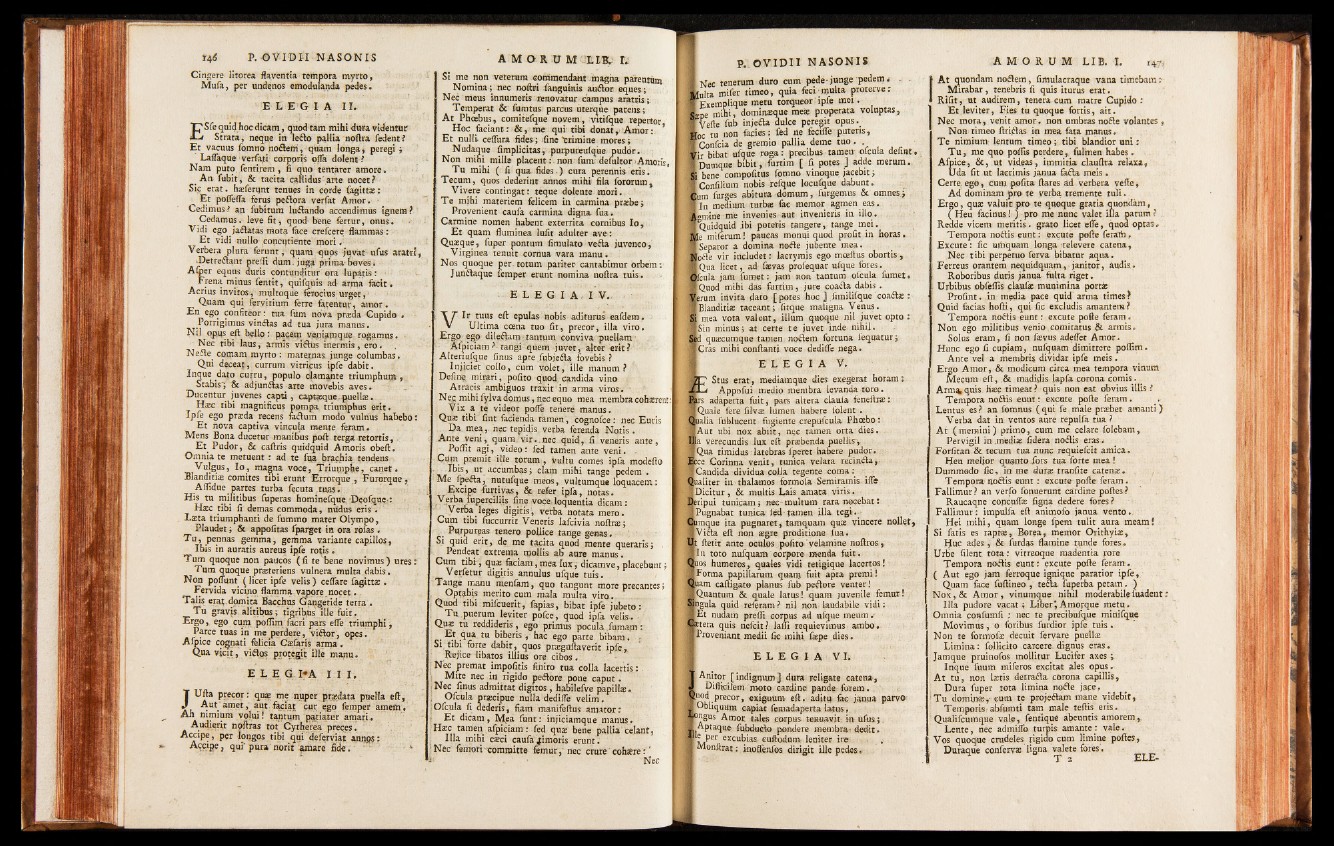 146 P. OVIDII NASONIS
Cingere litorea flaventia tempora myrto,
Musa, per undenos emodulanda pedes.
ELEGIA II.
ESse quid hoc dicam, quod tam mihi dura videntur
Strata, neque in lecto pallia nostra sedent?
Et vacuus somno noctem, quam longa, peregi;
Lassaque versati corporis ossa dolent?
Nam puto sentirem, si quo tentarer amore.
An subit, & tacita callidus arte nocet?
Sic erat. hæserunt tenues in corde sagittæ:
Et possessa ferus pectora versat Amor.
Cedimus? an subitum luctando accendimus ignem?
Cedamus. leve fit, quod bene fertur, onus.
Vidi ego jactatas mota face crescere flammas:
Et vidi nullo concutiente mori.
Verbera plura ferunt, quam quos juvat usus aratri,
Detrectant pressi dum juga prima boves.
Asper equus duris contunditur ora lupatis:
Frena minus sentit, quisquis ad arma facit.
Acrius invitos, multoque ferocius urget,
Quam qui servitium ferre fatentur, amor.
En ego confiteor: tua sum nova præda Cupido.
Porrigimus victas ad tua jura manus.
Nil opus est bello: pacem veniamque rogamus.
Nec tibi laus, armis victus inermis, ero.
Necte comam myrto: maternas junge columbas.
Qui deceat, currum vitricus ipse dabit.
Inque dato curru, populo clamante triumphum,
Stabis; & adjunctas arte movebis aves.
Ducentur juvenes capti, captæque puellæ.
Hæc tibi magnificus pompa triumphus erit.
Ipse ego præda recens factum modo vulnus habebo:
Et nova captiva vincula mente feram.
Mens Bona ducetur manibus post terga retortis,
Et Pudor, & castris quidquid Amoris obest.
Omnia te metuent: ad te sua brachia tendens
Vulgus, Io, magna voce, Triumphe, canet.
Blanditiæ comites tibi erunt Errorque, Furorque,
Assidue partes turba secuta tuas.
His tu militibus superas hominesque Deosque:
Hæc tibi si demas commoda, nudus eris.
Læta triumphanti de summo mater Olympo,
Plaudet; & appositas sparget in ora rosas.
Tu, pennas gemma, gemma variante capillos,
Ibis in auratis aureus ipse rotis.
Tum quoque non paucos (si te bene novimus) ures:
Tum quoque præteriens vulnera multa dabis.
Non possunt (licet ipse velis) cessare sagittæ.
Fervida vicino flamma vapore nocet.
Talis erat domita Bacchus Gangetide terra.
Tu gravis alitibus; tigribus ille fuit.
Ergo, ego cum possim sacri pars esse triumphi,
Parce tuas in me perdere, victor, opes.
Aspice cognati felicia Cæsaris arma.
Qua vicit, victos protegit ille manu.
ELEGIA III.
JUsta precor: quæ me nuper prædata puella est,
Aut amet, aut faciat cur ego semper amem.
Ah nimium volui! tantum patiater amari.
Audierit nostras tot Cytherea preces.
Accipe, per longos tibi qui deserviat annos:
Accipe, qui pura norit amare fide.
AMORUM LIB. I.
Si me non veterum commendant magna parentum
Nomina; nec nostri sanguinis auctor eques;
Nec meus innumeris renovatur campus aratris;
Temperat & sumtus parcus uterque parens:
At Phœbus, comitesque novem, vitisque repertor,
Hoc faciant: &, me qui tibi donat, Amor:
Et nulli cessura fides; sine crimine mores;
Nudaque simplicitas, purpureusque pudor.
Non mihi mille placent: non sum desultor Amoris,
Tu mihi (si qua fides) cura perennis eris.
Tecum, quos dederint annos mihi fila sororum,
Vivere contingat: teque dolente mori.
Te mihi materiem felicem in carmina præbe;
Provenient causa carmina digna sua.
Carmine nomen habent exterrita cornibus Io,
Et quam fluminea lusit adulter ave:
Quæque, super pontum simulato vecta juvenco,
Virginea tenuit cornua vara manu.
Nos quoque per totum pariter cantabimur orbem:
Junctaque semper erunt nomina nostra tuis.
ELEGIA IV.
VIr tuus est epulas nobis aditurus easdem.
Ultima cœna tuo sit, precor, illa viro.
Ergo ego dilectam tantum conviva puellam
Aspiciam? tangi quem juvet, alter erit?
Alteriusque sinus apte subjecta fovebis?
Injiciet collo, cum volet, ille manum?
Desine mirari, posito quod candida vino
Atracis ambiguos traxit in arma viros.
Nec mihi sylva domus, nec equo mea membra cohærent:
Vix a te videor posse tenere manus.
Quæ tibi sint facienda tamen, cognosce: nec Euris
Da mea, nec tepidis verba ferenda Notis.
Ante veni, quam vir. nec quid, si veneris ante,
Possit agi, video: sed tamen ante veni.
Cum premit ille torum, vultu comes ipsa modesto
Ibis, ut accumbas; clam mihi tange pedem.
Me specta, nutusque meos, vultumque loquacem:
Excipe furtivas, & refer ipsa, notas.
Verba superciliis sine voce loquentia dicam:
Verba leges digitis, verba notata mero.
Cum tibi succurrit Veneris lascivia nostræ;
Purpureas tenero pollice tange genas.
Si quid erit, de me tacita quod mente queraris;
Pendeat extrema mollis ab aure manus.
Cum tibi, quæ faciam, mea lux, dicamve, placebunt;
Versetur digitis annulus usque tuis.
Tange manu mensam, quo tangunt more precantes;
Optabis merito cum mala multa viro.
Quod tibi miscuerit, sapias, bibat ipse jubeto:
Tu puerum leviter posce, quod ipsa velis.
Quæ tu reddideris, ego primus pocula sumam:
Et qua tu biberis, hac ego parte bibam.
Si tibi forte dabit, quos prægustaverit ipse,
Rejice libatos illius ore cibos.
Nec premat impositis finito tua colla lacertis:
Mite nec in rigido pectore pone caput.
Nec sinus admittat digitos, habilesve papillæ.
Oscula præcipue nulla dedisse velim.
Oscula si dederis, fiam manifestus amator:
Et dicam, Mea sunt: injiciamque manus.
Hæc tamen aspiciam: sed quæ bene pallia celant,
Illa mihi cæci causa timoris erunt.
Nec femori committe femur, nec crure cohære:
Nec
P. OVIDII NASONIS
Nec tenerum duro cum pede junge pedem.
Multa miser timeo, quia feci multa proterve:
Exemplique metu torqueor ipse mei.
Sæpe mihi, dominæque meæ properata voluptas,
Veste sub injecta dulce peregit opus.
Hoc tu non facies: sed ne fecisse puteris,
Conscia de gremio pallia deme tuo.
Vir bibat usque roga: precibus tamen oscula desint.
Dumque bibit, furtim [ si potes ] adde merum.
Si bene compositus somno vinoque jacebit;
Consilium nobis resque locusque dabunt.
Cum surges abitura domum, surgemus & omnes;
In medium turbæ fac memor agmen eas.
Agmine me invenies aut invenieris in illo.
Quidquid ibi poteris tangere, tange mei.
Me miserum! paucas monui quod prosit in horas.
Separor a domina nocte jubente mea.
Nocte vir includet: lacrymis ego mœstus obortis,
Qua licet, ad sævas prosequar usque fores.
Oscula jam sumet: jam non tantum oscula sumet.
Quod mihi das furtim, jure coacta dabis.
Verum invita dato [potes hoc] similisque coactæ:
Blanditiæ taceant; sitque maligna Venus.
Si mea vota valent, illum quoque nil juvet opto:
Sin minus; at certe te juvet inde nihil.
Sed quæcumque tamen noctem fortuna sequatur;
Cras mihi constanti voce dedisse nega.
ELEGIA V.
ÆStus erat, mediamque dies exegerat horam:
Apposui medio membra levanda toro.
Pars adaperta fuit, pars altera clausa fenestræ:
Quale fere silvæ lumen habere solent.
Qualia sublucent fugiente crepuscula Phœbo:
Aut ubi nox abiit, nec tamen orta dies.
Illa verecundis lux est præbenda puellis,
Qua timidus latebras speret habere pudor.
Ecce Corinna venit, tunica velata recincta,
Candida dividua colla tegente coma:
Qualiter in thalamos formosa Semiramis isse
Dicitur, & multis Lais amata viris.
Deripui tunicam; nec multum rara nocebat:
Pugnabat tunica sed tamen illa tegi.
Cumque ita pugnaret, tamquam quæ vincere nollet,
Victa est non ægre proditione sua.
Ut stetit ante oculos posito velamine nostros,
In toto nusquam corpore menda fuit.
Quos humeros, quales vidi tetigique lacertos!
Forma papillarum quam fuit apta premi!
Quam castigato planus sub pectore venter!
Quantum & quale latus! quam juvenile femur!
Singula quid referam? nil non laudabile vidi:
Et nudam pressi corpus ad usque meum.
Cætera quis nescit? lassi requievimus ambo.
Proveniant medii sic mihi sæpe dies.
ELEGIA VI.
JAnitor [indignum] dura religate catena,
Difficilem moto cardine pande forem.
Quod precor, exiguum est. aditu fac janua parvo
Obliquum capiat semiadaperta latus.
Longus Amor tales corpus tenuavit in usus;
Aptaque subducto pondere membra dedit.
Ille per excubias custodum leniter ire
Monstrat: inoffensos dirigit ille pedes.
AMORUM LIB. I. 147
At quondam noctem, simulacraque vana timebam:
Mirabar, tenebris si quis iturus erat.
Risit, ut audirem, tenera cum matre Cupido:
Et leviter, Fies tu quoque fortis, ait.
Nec mora, venit amor. non umbras nocte volantes,
Non timeo strictas in mea fata manus.
Te nimium lentum timeo; tibi blandior uni:
Tu, me quo possis perdere, fulmen habes.
Aspice, &, ut videas, immitia claustra relaxa,
Uda sit ut lacrimis janua facta meis.
Certe ego, cum posita stares ad verbera veste,
Ad dominam pro te verba tremente tuli.
Ergo, quæ valuit pro te quoque gratia quondam,
(Heu facinus!) pro me nunc valet illa parum?
Redde vicem meritis. grato licet esse, quod optas.
Tempora noctis eunt: excute poste seram.
Excute: sic umquam longa relevere catena,
Nec tibi perpetuo serva bibatur aqua.
Ferreus orantem nequidquam, janitor, audis.
Roboribus duris janua fulta riget.
Urbibus obsessis clausæ munimina portæ
Prosint. in media pace quid arma times?
Quid facias hosti, qui sic excludis amantem?
Tempora noctis eunt: excute poste seram.
Non ego militibus venio comitatus & armis.
Solus eram, si non sævus adesset Amor.
Hunc ego si cupiam, nusquam dimittere possim.
Ante vel a membris dividar ipse meis.
Ergo Amor, & modicum circa mea tempora vinum
Mecum est, & madidis lapsa corona comis.
Arma quis hæc timeat? quis non eat obvius illis?
Tempora noctis eunt: excute poste seram.
Lentus es? an somnus (qui se male præbet amanti)
Verba dat in ventos aure repulsa tua?
At (memini) primo, cum me celare solebam,
Pervigil in mediæ sidera noctis eras.
Forsitan & tecum tua nunc requiescit amica.
Heu melior quanto sors tua sorte mea!
Dummodo sic, in me duræ transite catenæ.
Tempora noctis eunt: excute poste seram.
Fallimur? an verso sonuerunt cardine postes?
Raucaque concussæ signa dedere fores?
Fallimur: impulsa est animoso janua vento.
Hei mihi, quam longe spem tulit aura meam!
Si satis es raptæ, Borea, memor Orithyiæ,
Huc ades, & surdas flamine tunde fores.
Urbe silent tota: vitreoque madentia rore
Tempora noctis eunt: excute poste seram.
( Aut ego jam ferroque ignique paratior ipse,
Quam face sustineo, tecta superba petam. )
Nox, & Amor, vinumque nihil moderabile suadent:
Illa pudore vacat; Liber, Amorque metu.
Omnia consumsi: nec te precibusque minisque
Movimus, o foribus surdior ipse tuis.
Non te formosæ decuit servare puellæ
Limina: sollicito carcere dignus eras.
Jamque pruinosos mollitur Lucifer axes;
Inque suum miseros excitat ales opus.
At tu, non lætis detracta corona capillis,
Dura super tota limina nocte jace.
Tu dominæ, cum te projectam mane videbit,
Temporis absumti tam male testis eris.
Qualiscumque vale, sentique abeuntis amorem,
Lente, nec admisso turpis amante: vale.
Vos quoque crudeles rigido cum limine postes,
Duraque conservæ ligna valete fores.
T 2 ELE-